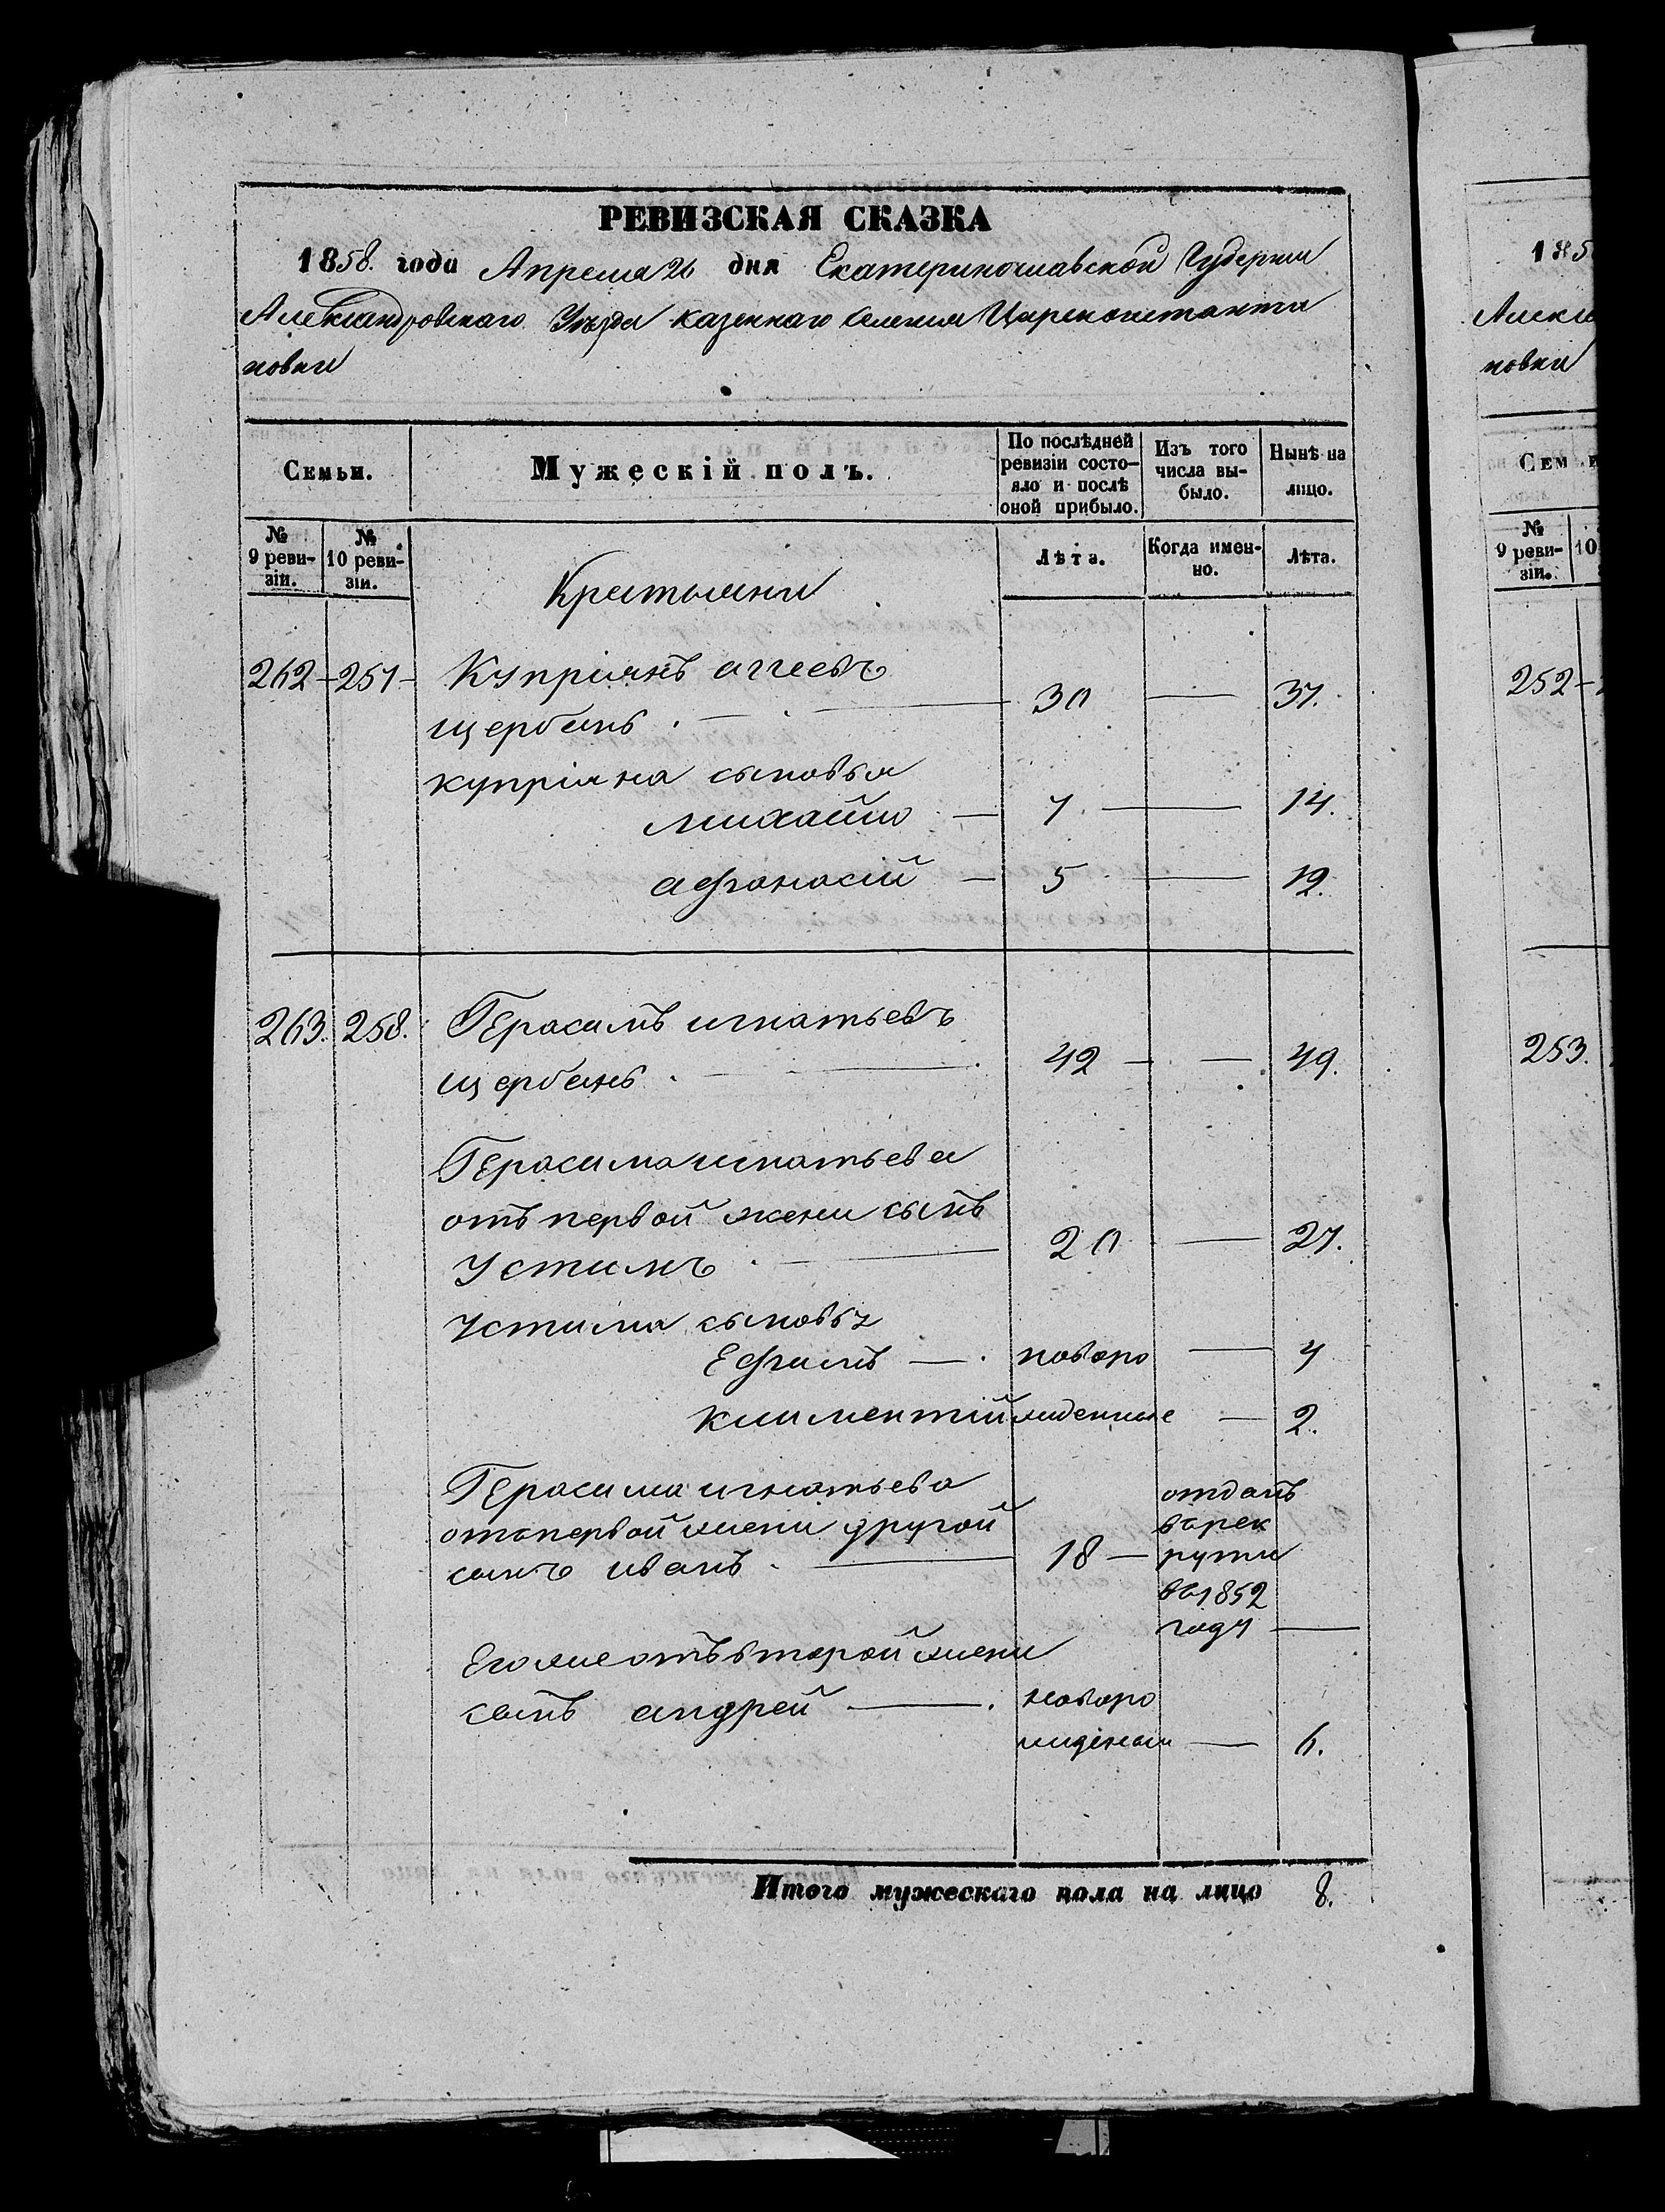 РЕВИЗСКАЯ СКАЗКА
1858. года Апреля 26 дня Екатеринославской Губернии
Александровскаго Уезда казеннаго селения Цареконстанти
новки
Семьи.
Мужескій полъ.
По послѣдней ревизіи состо-
яло и послѣ оной прибыло.
Изъ того числа вы-
было.
Нынѣ на лицо.
№ 9 реви-
зіи.
№ 10 реви-
зіи.
Лѣта.
Когда имен-
но.
Лѣта.
Крестьяни
262 - 257 - Купріянъ аггеевъ
щербань. — 30 — 37.
купріяна сыновья
михайло — 7 — 14.
афонасій — 5 — 12.
263. 258. Герасимъ игнатьевъ
щербань. — 42 — — 49.
Герасима игнатьева
отъ первой жени сынъ
Устимъ. — 20 — 27.
Устима сыновья
Ефимъ — . новоро — 4
климентій жденные — 2.
Герасима игнатьева
отъ первой жени другой
сынъ иванъ. — 18 —
отданъ
въ рек
рути
въ 1852
году —
Его же отъ второй жени
сынъ андрей — . новоро
жденни — 6.
Итого мужескаго пола на лицо 8.
185
Алекса
новки
Сем
№ 9 реви-
зіи.
10
252 -
253.